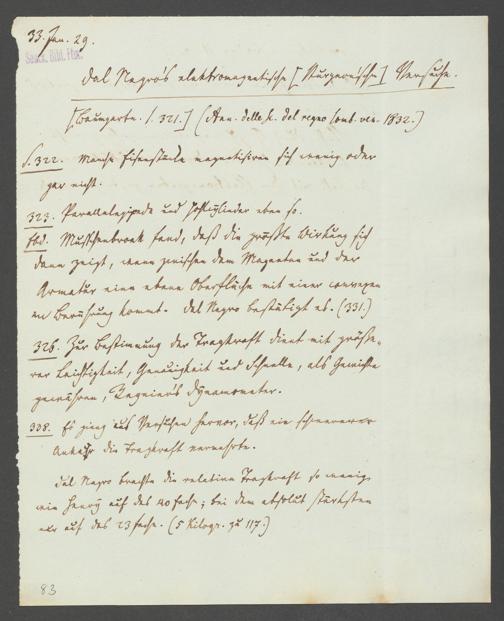 33. Jan. 29.
Senck. Bibl. Ffm.
Dal Negro's elektromagnetische [Sturgeon'sche] Versuche.
[Baumgartn. S. 321.] (Ann. delle sc. del regno Lomb. ven. 1832.)
S. 322. Manche Eisenstücke magnetisiren sich wenig oder
gar nicht.
323. Parallelepipede und Hohlcylinder eben so.
Ebd. Musschenbroek fand, daß die größte Wirkung sich
dann zeigt, wenn zwischen dem Magneten und der
Armatur eine ebene Oberfläche mit einer convexen
in Berührung kommt. Dal Negro bestätigt es. (331.)
326. Zur Bestimmung der Tragkraft dient mit größe-
rer Leichtigkeit, Genauigkeit und Schnelle, als Gewichte
gewähren, Regnier's Dynamometer.
338. Es ging aus Versuchen hervor, daß ein schwererer
Anker die Tragkraft vermehrte.
Dal Negro brachte die relative Tragkraft so wenig
wie Henry auf das 40 fache; bei dem absolut stärksten
nur auf das 23 fache. (5 Kilogr. zu 117.)
83